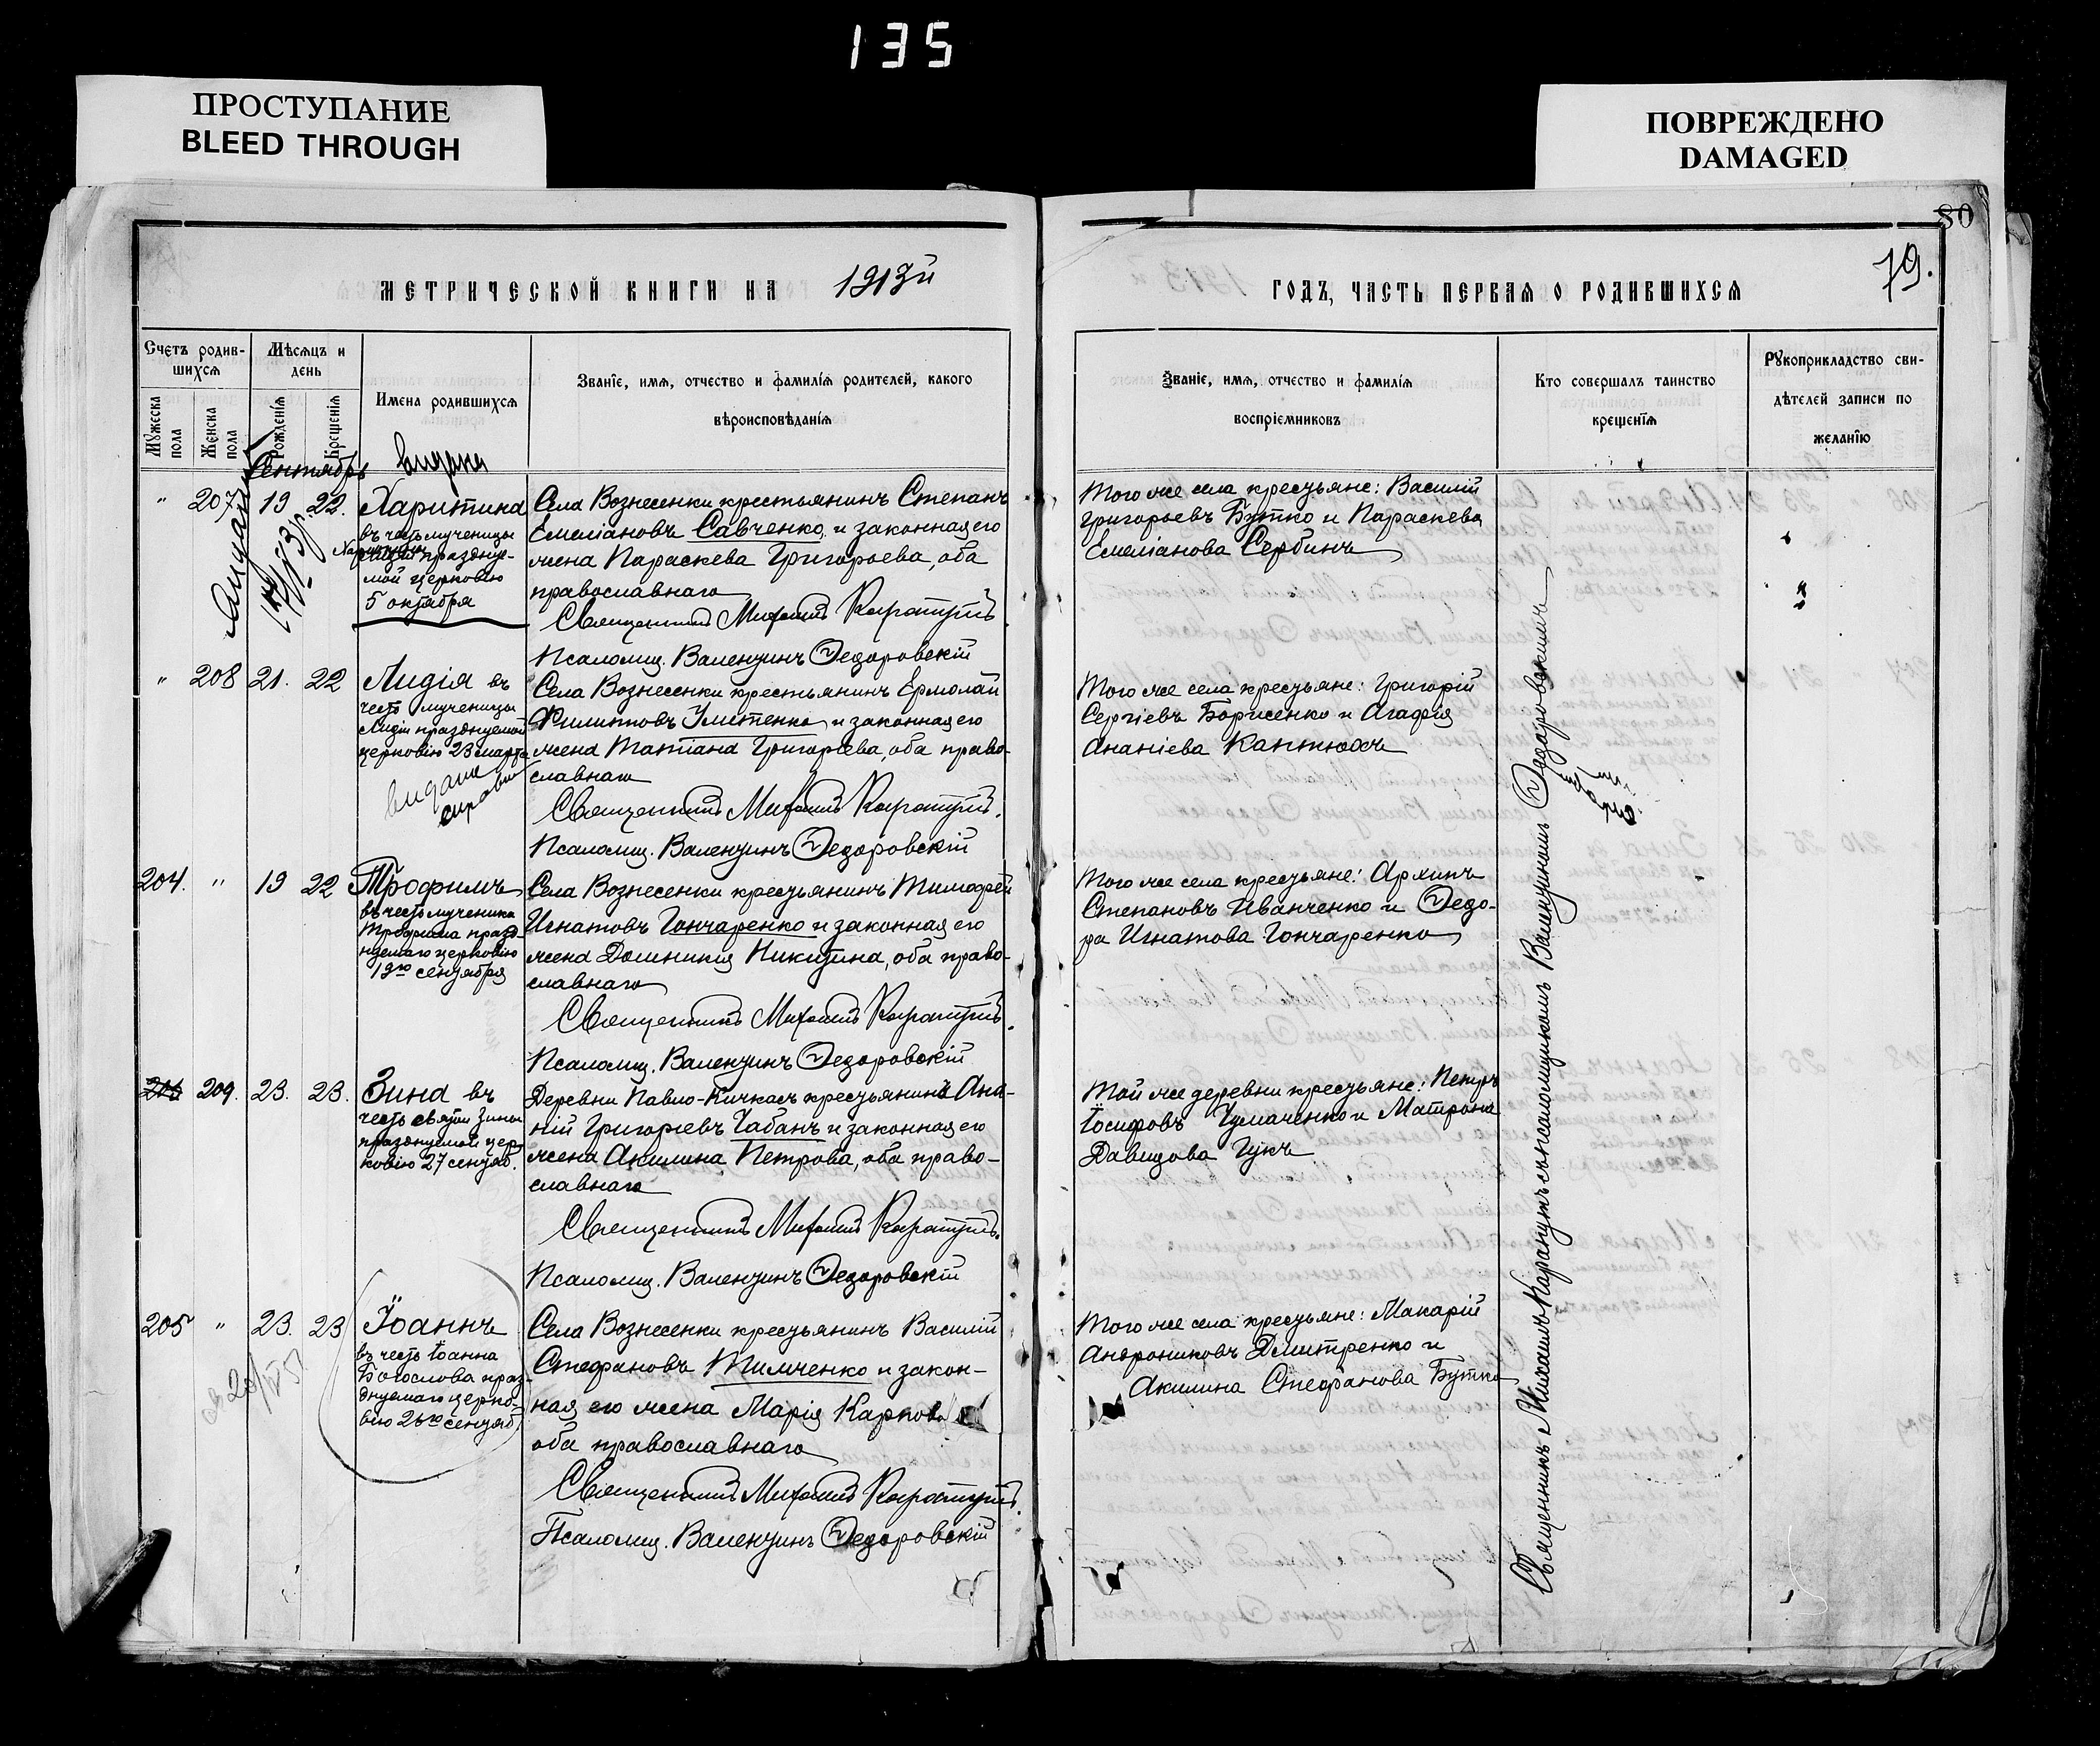 135
ПРОСТУПАНИЕ
BLEED THROUGH
ПОВРЕЖДЕНО
DAMAGED
80
79.
МЕТРИЧЕСКОЙ КНИГИ НА 1913й
ГОДЪ, ЧАСТЬ ПЕРВАЯ О РОДИВШИХСЯ
Счетъ родив-
шихся
Мѣсяцъ и
день
Мужеска
пола
Женска
пола
Рожденія
Крещенія
Имена родившихся
Званіе, имя, отчество и фамилія родителей, какого
вѣроисповѣданія
Званіе, имя, отчество и фамилія
воспріемниковъ
Кто совершалъ таинство
крещенія
Рукоприкладство сви-
дѣтелей записи по
желанію
Сентябрь
видана
" 207 19 22.
Харитина
въ честь мученицы
празднуе-
мой церковію
5 октября
Села Вознесенки крестьянинъ Степанъ
Емеліановъ Савченко и законная его
жена Параскева Григорьева, оба
православнаго
Священникъ Михаилъ Каратутъ
Псаломщ. Валентинъ Ѳедоровскій
Того же села крестьяне: Василій
Григорьевъ Бутко и Параскева
Емеліанова Сербинъ
" 208 21. 22
Лидія въ
честь мученицы
Лидіи празднуемой
церковію 23 марта
видана
Села Вознесенки крестьянинъ Ермолай
Филипповъ и законная его
жена Татіана Григоріева, оба право-
славнаго
Священникъ Михаилъ Каратутъ.
Псаломщ. Валентинъ Ѳедоровскій
Того же села крестьяне: Григорій
Сергіевъ Борисенко и Агафія
Ананіева Кантюхъ
204. " 19 22
Трофимъ
въ честь мученика
Трофима празд-
нуемаго церковію
19го сентября
Села Вознесенки крестьянинъ Тимофей
Игнатовъ Гончаренко и законная его
жена Домникія Никитина, оба право-
славнаго
Священникъ Михаилъ Каратутъ.
Псаломщ. Валентинъ Ѳедоровскій
Того же села крестьяне: Архипъ
Степановъ Иванченко и Ѳедо-
ра Игнатова Гончаренко
209. 23. 23.
Зина въ
честь святой Зины
празднуемой цер-
ковію 27 сентяб.
Деревни Павло-Кичкасъ крестьянинъ Ана-
ній Григоріевъ Чабанъ и законная его
жена Акилина Петрова, оба право-
славнаго
Священникъ Михаилъ Каратутъ.
Псаломщ. Валентинъ Ѳедоровскій
Той же деревни крестьяне: Петръ
Іосифовъ Чумаченко и Матрона
Давидова Гукъ
205 " 23. 23
Іоаннъ
въ честь Іоанна
Богослова праз-
днуемаго церко-
вію 26го сентяб.
Села Вознесенки крестьянинъ Василій
Стефановъ Тимченко и закон-
ная его жена Марія Карпова
оба православнаго
Священникъ Михаилъ Каратутъ.
Псаломщ. Валентинъ Ѳедоровскій
Того же села крестьяне: Макарій
Андрониковъ Дмитренко и
Акилина Стефанова Бутко
Священникъ Михаилъ Каратутъ съ псаломщикомъ Валентиномъ Ѳедоровскимъ